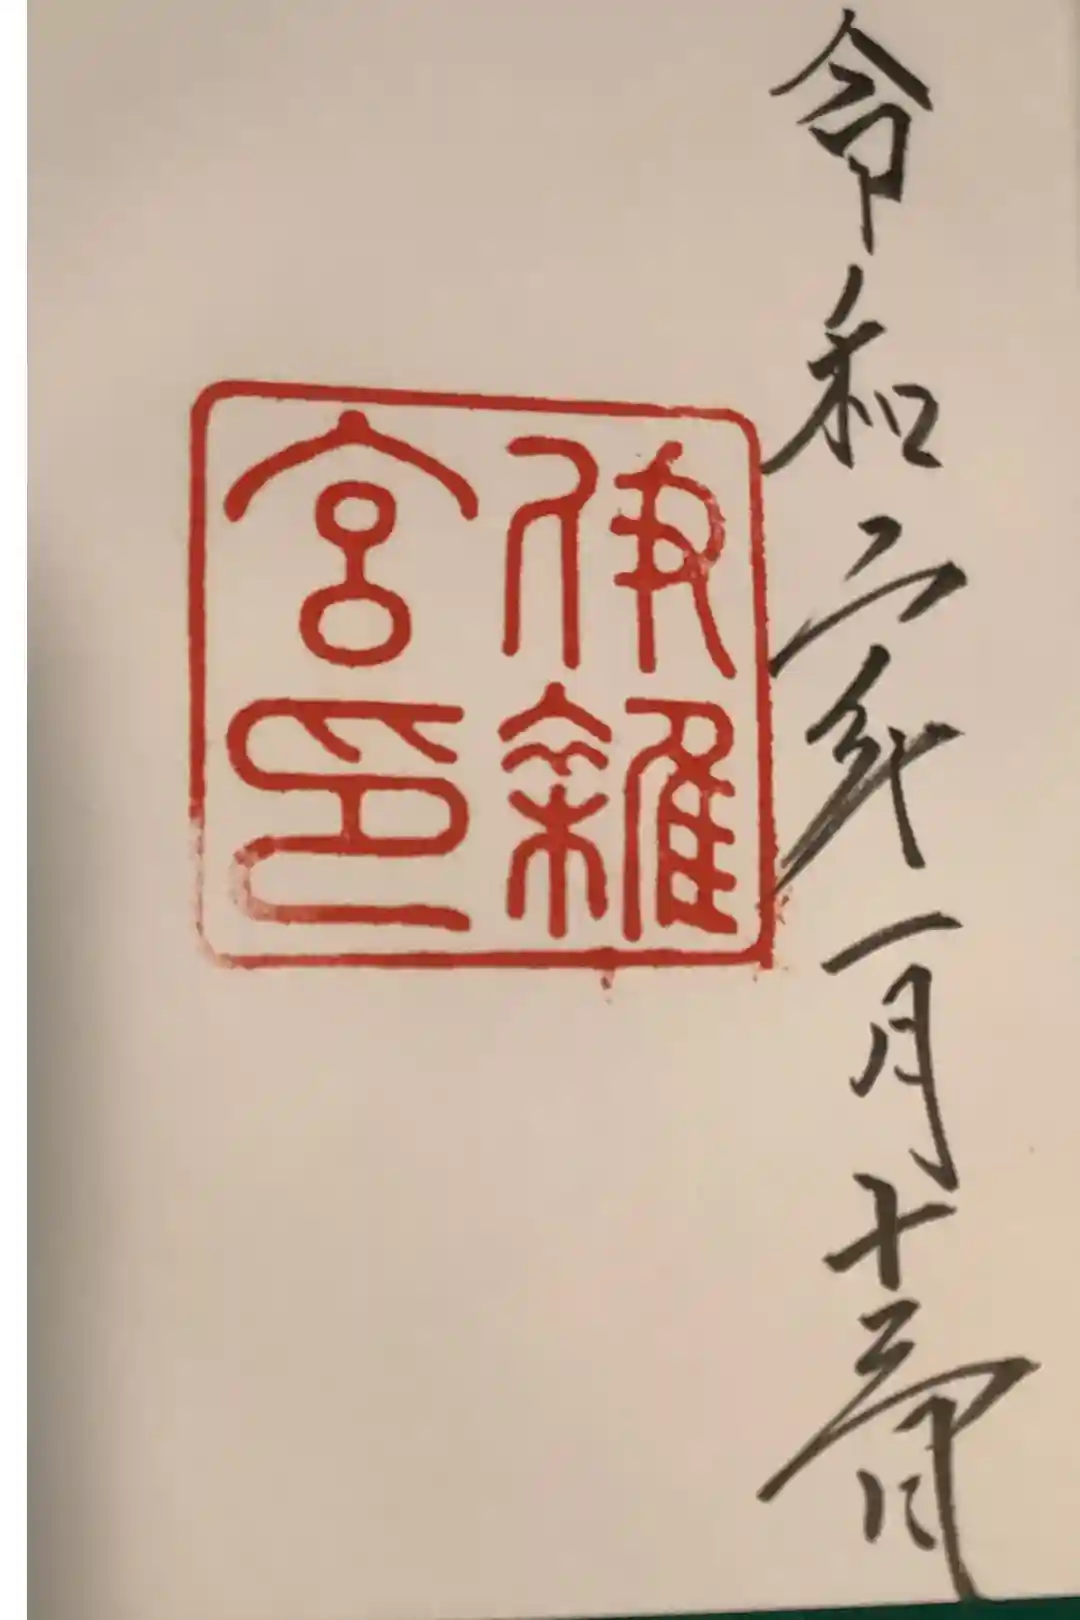 令和二年一月十三日
伊雜
宮印